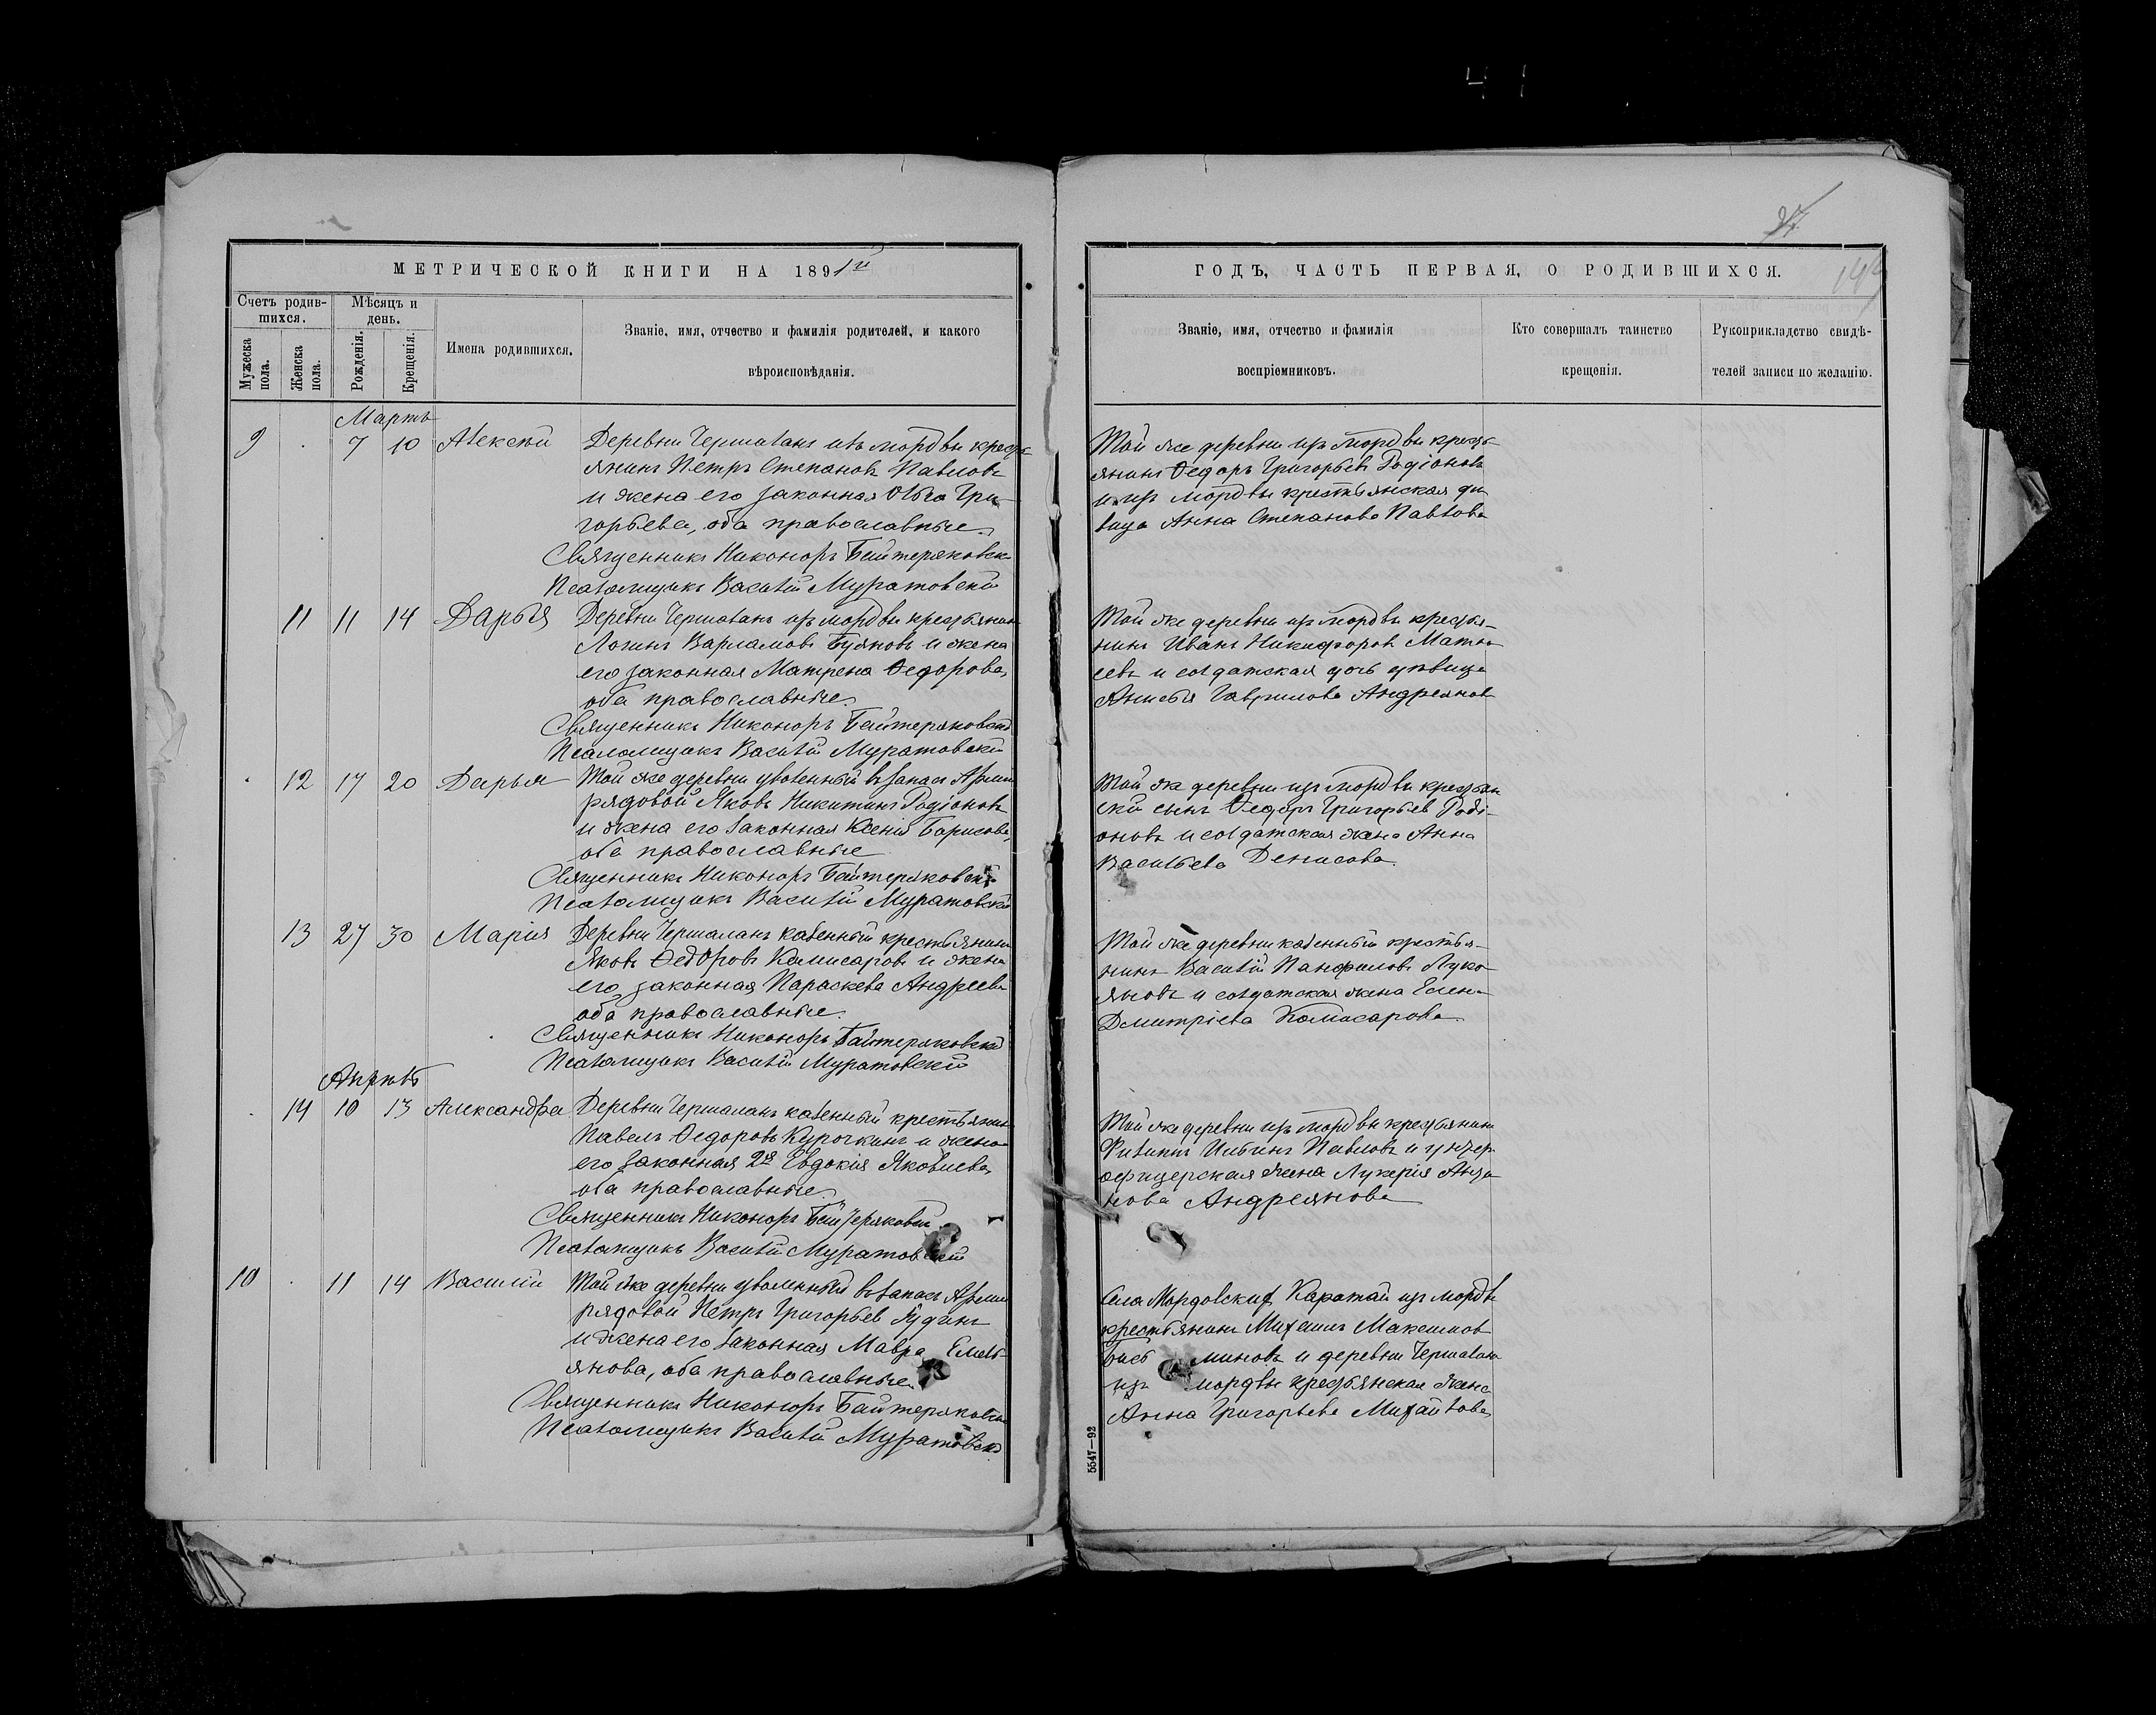 МЕТРИЧЕСКОЙ КНИГИ НА 1891й
Счетъ родив-
шихся.
Мѣсяцъ и
день.
Мужеска
пола.
Женска
пола.
Рожденія.
Крещенія.
Имена родившихся.
Званіе, имя, отчество и фамилія родителей, и какого
вѣроисповѣданія.
Мартъ
9 7 10 Алексѣй Деревни Чермаланъ изъ мордвы кресть
янинъ Петръ Степановъ Павловъ
и жена его законная Ольга Гри-
горьева, оба православные.
Священникъ Никоноръ Байтеряковск
Псаломщикъ Василій Муратовскій
11 11 14 Дарья Деревни Чермаланъ изъ мордвы крестьянин
Логинъ Варламовъ Буяновъ и жена
его законная Матрена Ѳедорова,
оба православные.
Священникъ Никоноръ Байтеряковскій
Псаломщикъ Василій Муратовскій
12 17 20 Дарья Той же деревни уволенный въ запасъ Арміи
рядовой Яковъ Никитинъ Родіоновъ
и жена его законная Ксенія Борисова,
оба православные
Священникъ Никоноръ Байтеряковскій
Псаломщикъ Василій Муратовскій
13 27 30 Марія Деревни Чермаланъ казенный крестьянинъ
Яковъ Ѳедоровъ Комисаровъ и жена
его законная Параскева Андреева
оба православные.
Священникъ Никоноръ Байтеряковскій
Псаломщикъ Василій Муратовскій
Апрѣль
14 10 13 Александра Деревни Чермаланъ казенный крестьянин
Павелъ Ѳедоровъ Курочкинъ и жена
его законная 2я Евдокія Яковлева,
оба православные.
Священникъ Никоноръ Байтеряковскій
Псаломщикъ Василій Муратовскій
10 11 14 Василій Той же деревни уволенный въ запасъ Арміи
рядовой Петръ Григорьев
и жена его законная Мавра Емель-
янова, оба православные.
Священникъ Никоноръ Байтеряковскій
Псаломщикъ Василій Муратовскій
27
149
ГОДЪ, ЧАСТЬ ПЕРВАЯ, О РОДИВШИХСЯ.
Званіе, имя, отчество и фамилія
воспріемниковъ.
Кто совершалъ таинство
крещенія.
Рукоприкладство свидѣ-
телей записи по желанію.
Той же деревни изъ мордвы кресть
янинъ Ѳедоръ Григорьевъ Родіоновъ
и изъ мордвы крестьянская дѣ
вица Анна Степанова Павлова
Той же деревни изъ мордвы крестья-
нинъ Иванъ Никифоровъ Матвѣ
евъ и солдатская дочь дѣвица
Анисья Гаврилова Андреянов
Той же деревни изъ мордвы крестьян
скій сынъ Ѳедоръ Григорьев Роді-
оновъ и солдатская жена Анна
Васильева Денисова.
Той же деревни казенный крестья-
нинъ Василій Панфиловъ Лукo-
яновъ и солдатская жена Елена
Дмитріева Комисарова.
Той же деревни изъ мордвы крестьянинъ
Филиппъ Павловъ и унтер
офицерская жена Лукерія
Андреянова
Села Мордовскихъ Каратай изъ мордвы
крестьянинъ Максимов
миновъ и деревни Чермаланъ
изъ мордвы крестьянская жена
Анна Григорьева Михайлова,
5547—92